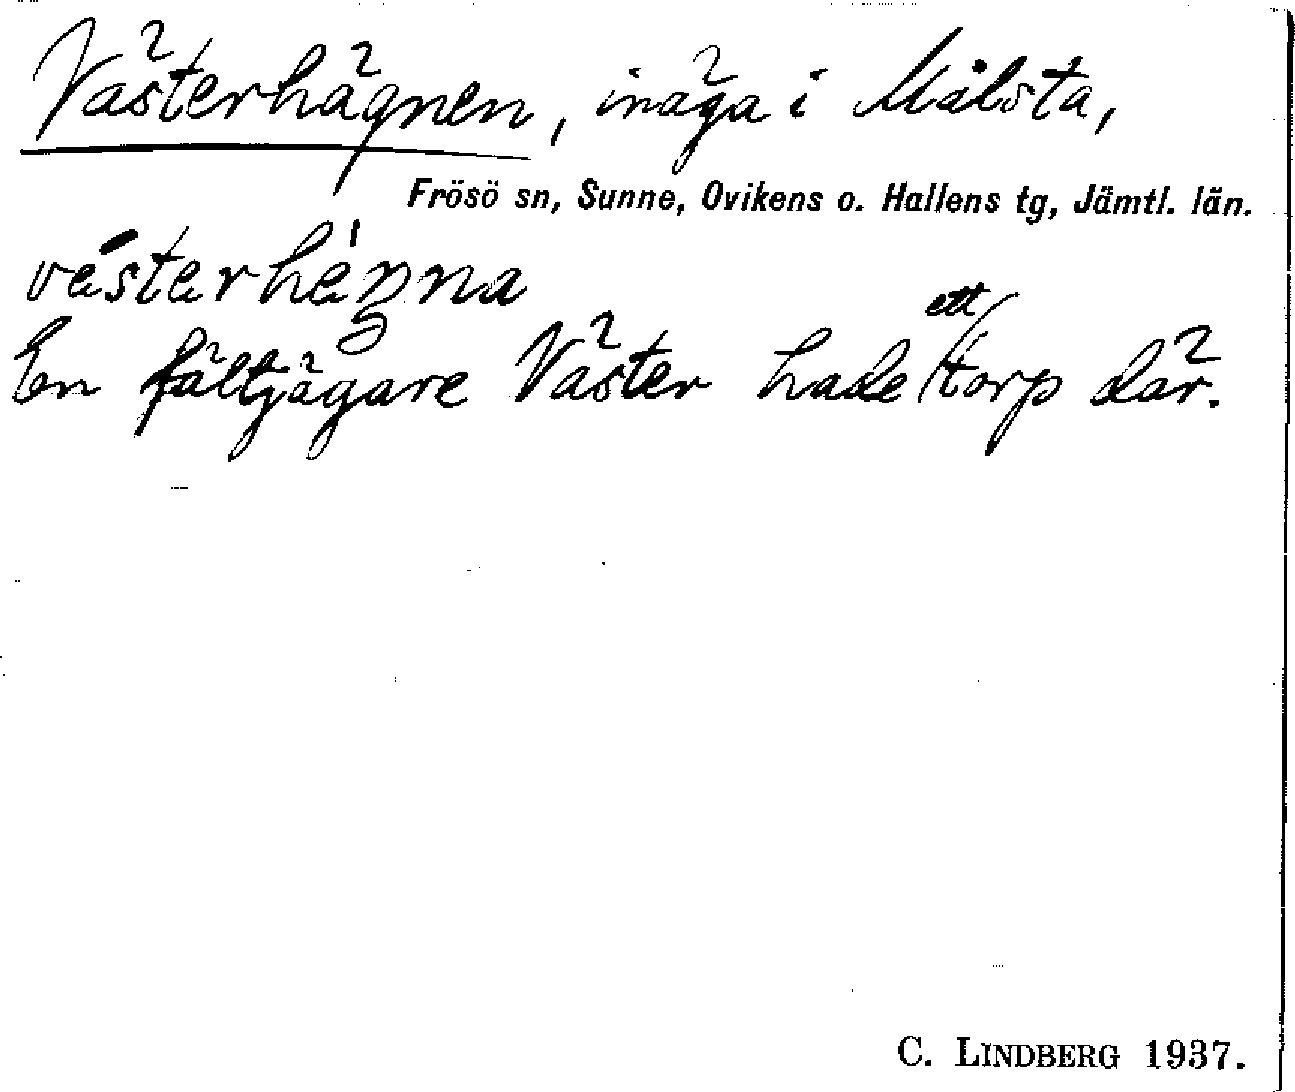 Västerhägnen, inäga i Målsta,
Frösö sn, Sunne, Ovikens o. Hallens tg, Jämtl. län.
vésterhéŋna
En fältjägare Väster hade ett torp där.
C. LINDBERG 1937.